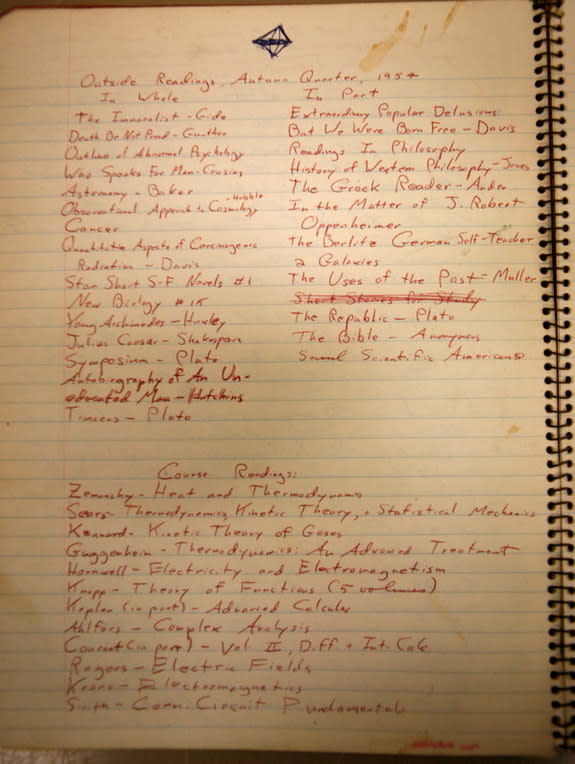 Outside Readings, Autumn Quarter, 1954
In Whole
The Immoralist - Gide
Death Be Not Proud - Gunther
Outline of Abnormal Psychology
Who Speaks For Man - Cousins
Astronomy - Baker
Observational Approach to Cosmology - Hubble
Cancer
Quantitative Aspects of Carcinogenic
Radiation - Davis
Star Short S-F Novels #1
New Biology #15
Young Archimedes - Huxley
Julius Caesar - Shakespare
Symposium - Plato
Autobiography of An Un-
educated Man - Hutchins
Timaeus - Plato
In Part
Extraordinary Popular Delusions
But We Were Born Free - Davis
Readings In Philosophy
History of Western Philosophy - Jones
The Greek Reader - Auden
In the Matter of J. Robert
Oppenheimer
The Berlitz German Self-Teacher
2 Galaxies
The Uses of the Past - Muller
Short Stories for Study
The Republic - Plato
The Bible - Anonymous
Several Scientific Americans
Course Readings:
Zemansky - Heat and Thermodynamics
Sears - Thermodynamics, Kinetic Theory, + Statistical Mechanics
Kennard - Kinetic Theory of Gases
Guggenheim - Thermodynamics: An Advanced Treatment
Harnwell - Electricity and Electromagnetism
Knopp - Theory of Functions (5 volumes)
Kaplan (in part) - Advanced Calculus
Ahlfors - Complex Analysis
Courant (in part) - Vol. II, Diff. + Int. Calc
Rogers - Electric Fields
Kraus - Electromagnetics
Smith - Comm. Circuit Fundamentals